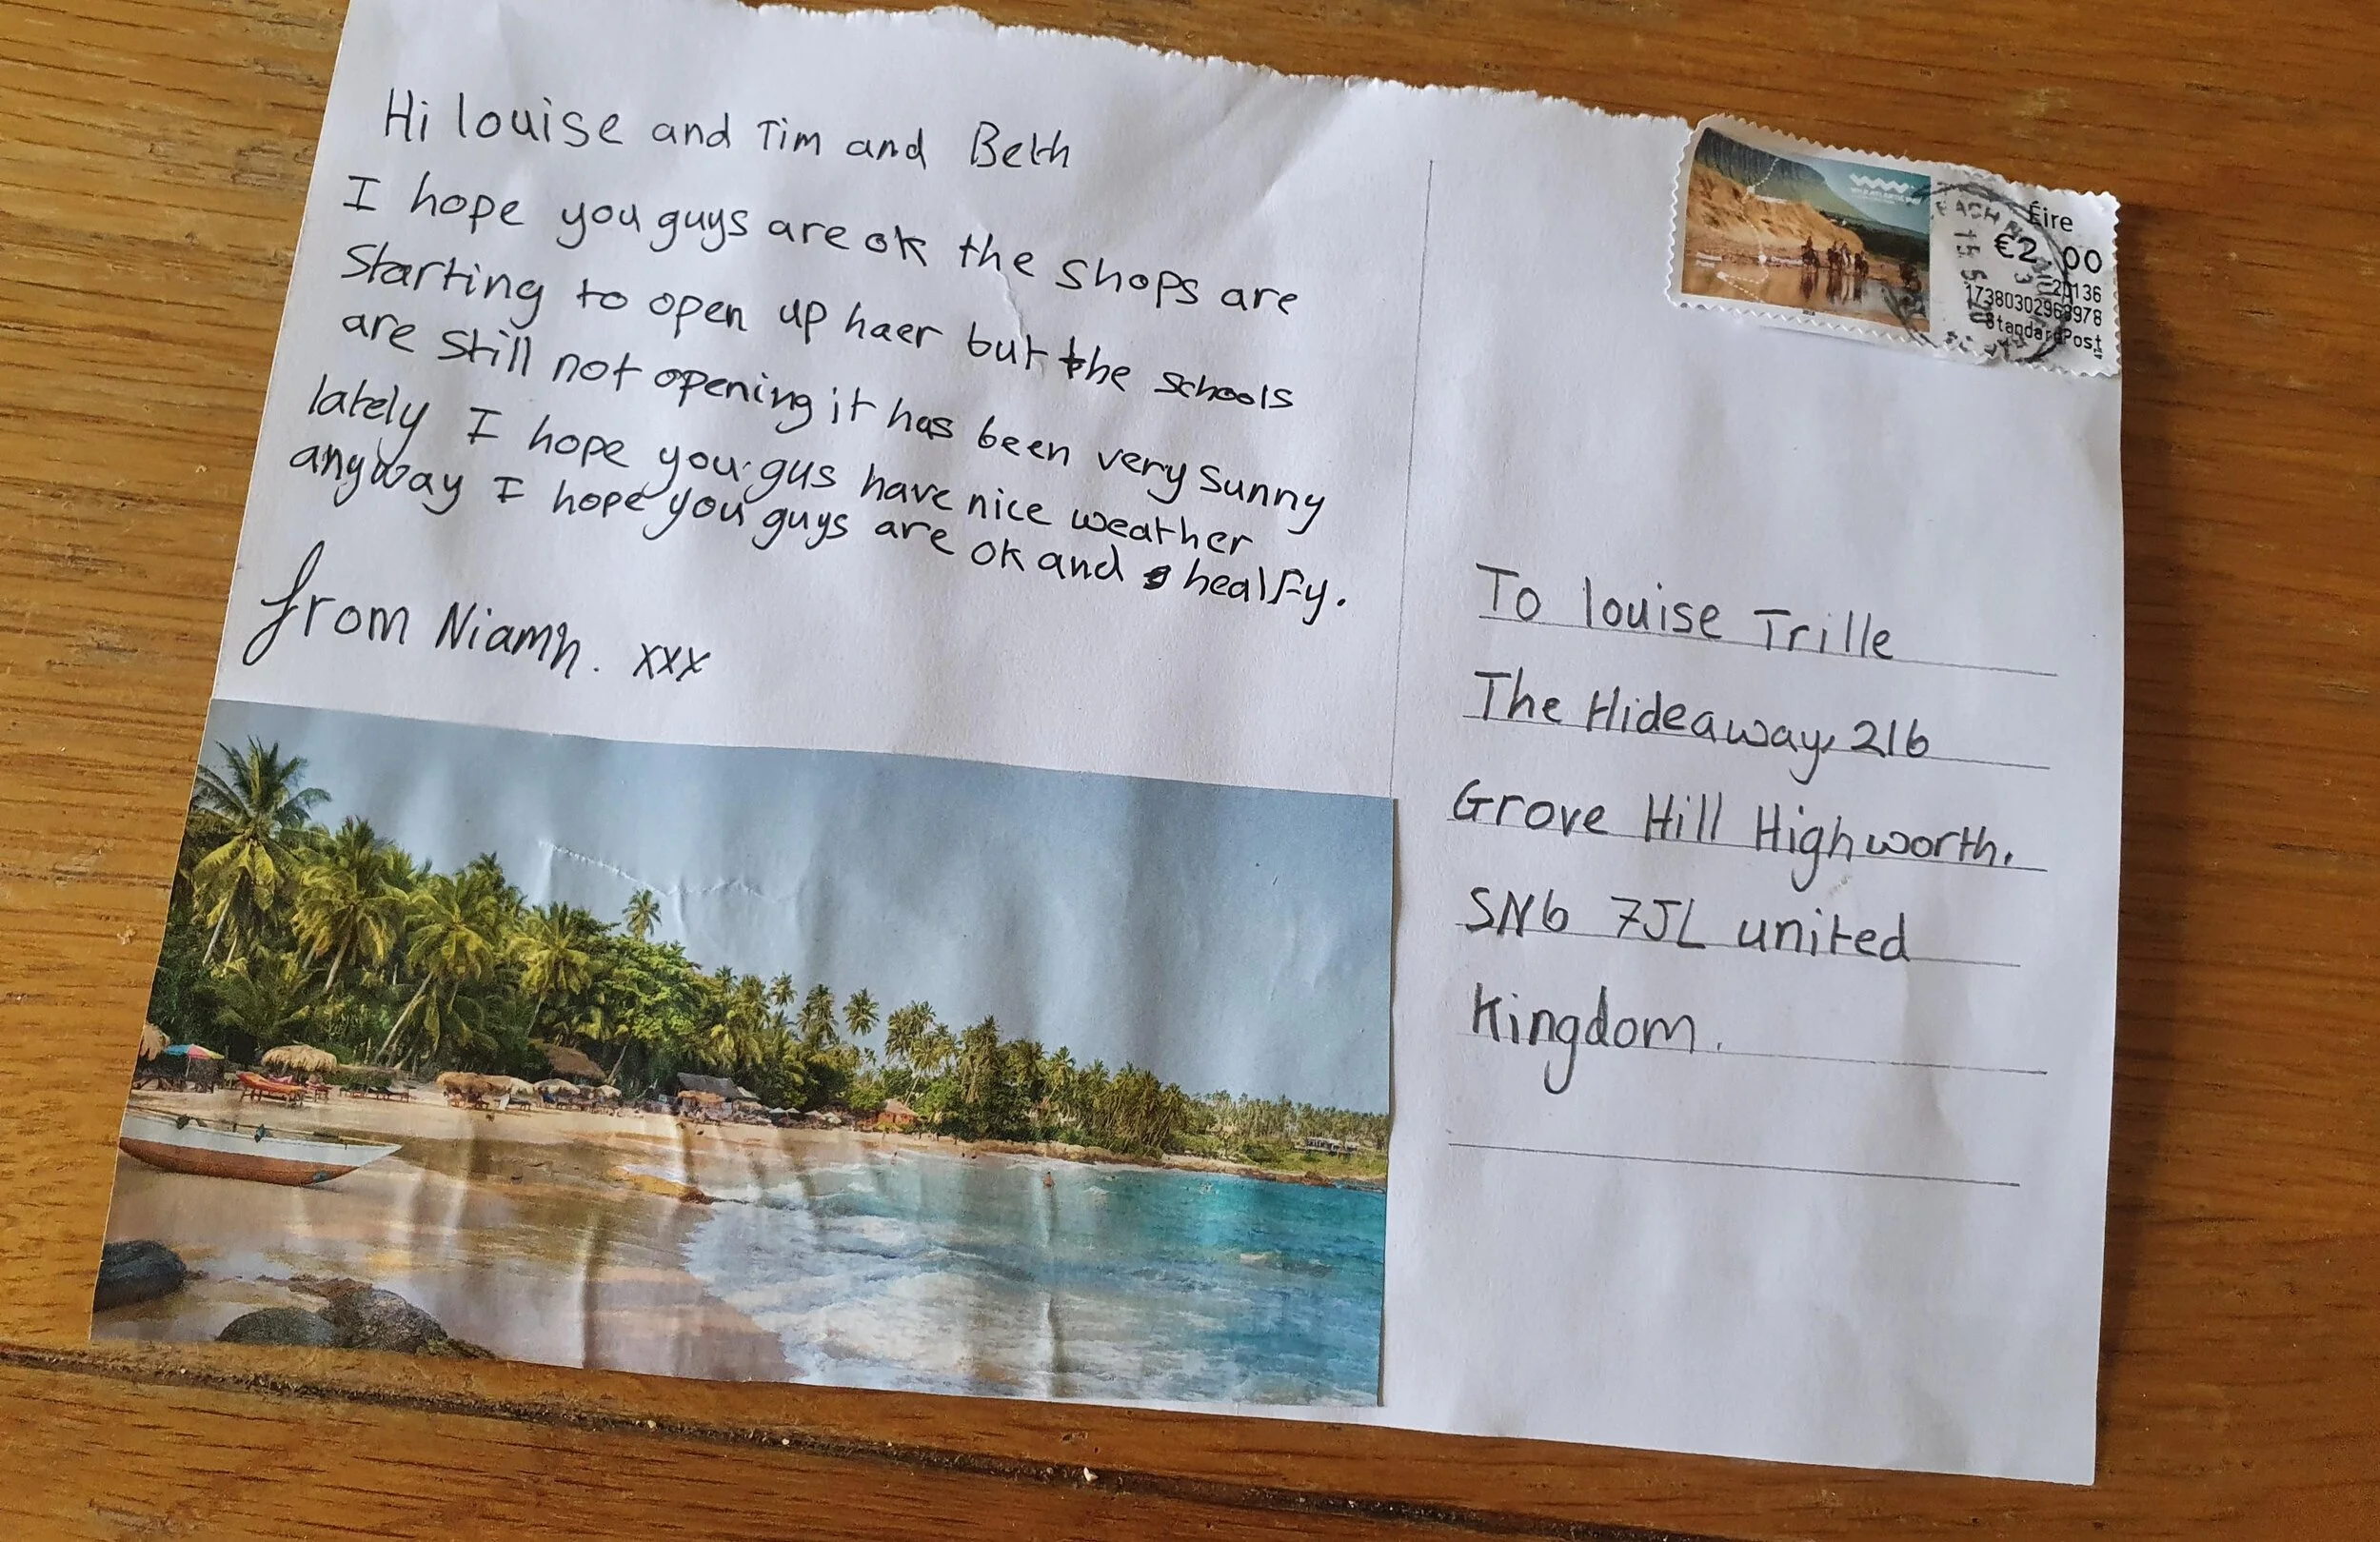 Hi louise and Tim and Beth
I hope you guys are ok the shops are
Starting to open up haer but the schools
are still not opening it has been very sunny
lately I hope you gus have nice weather
anyway I hope you guys are ok and healfy.
from Niamh. xxx
Éire
€2 00
136
17380302968978
StandardPost
To louise Trille
The Hideaway, 216
Grove Hill Highworth.
SN6 7JL united
Kingdom.